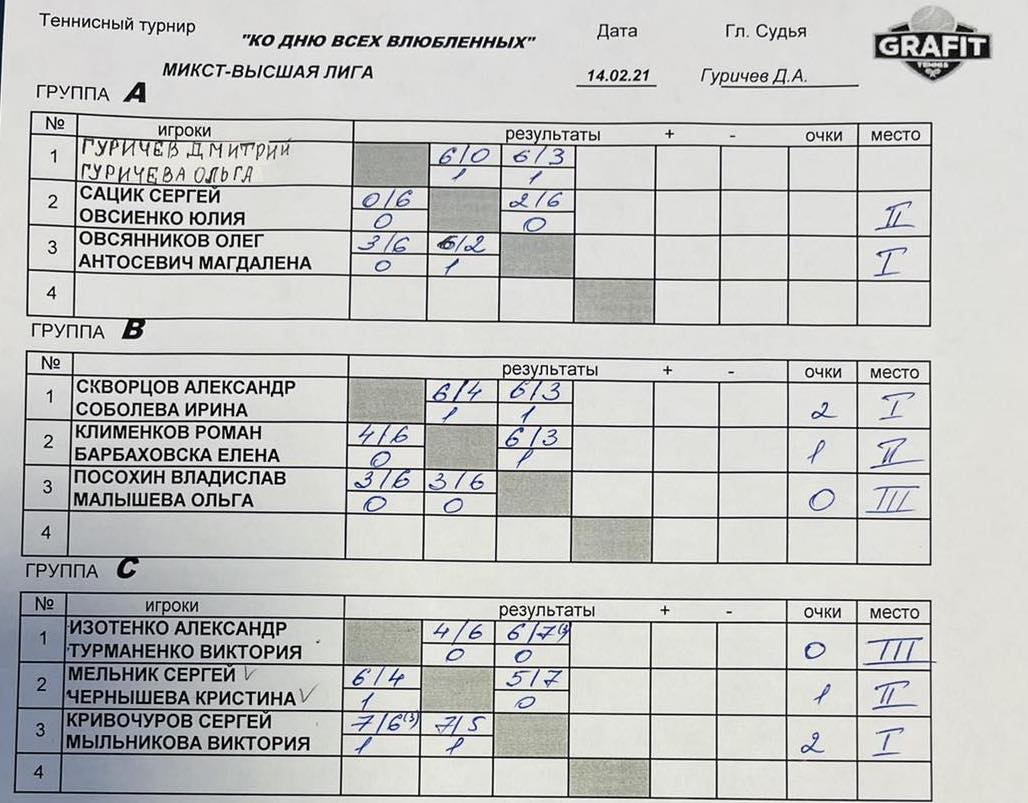 Теннисный турнир
"КО ДНЮ ВСЕХ ВЛЮБЛЕННЫХ"
Дата
Гл. Судья
GRAFIT
TENNIS
МИКСТ-ВЫСШАЯ ЛИГА
14.02.21
Гуричев Д.А.
ГРУППА A
№ игроки результаты + - очки место
1 ГУРИЧЕВ ДМИТРИЙ 6/0 6/3
ГУРИЧЕВА ОЛЬГА 1 1
2 САЦИК СЕРГЕЙ 0/6 2/6
ОВСИЕНКО ЮЛИЯ 0 0 II
3 ОВСЯННИКОВ ОЛЕГ 3/6 6/2
АНТОСЕВИЧ МАГДАЛЕНА 0 1 I
4
ГРУППА B
№ результаты + - очки место
1 СКВОРЦОВ АЛЕКСАНДР 6/4 6/3
СОБОЛЕВА ИРИНА 1 1 2 I
2 КЛИМЕНКОВ РОМАН 4/6 6/3
БАРБАХОВСКА ЕЛЕНА 0 1 1 II
3 ПОСОХИН ВЛАДИСЛАВ 3/6 3/6
МАЛЫШЕВА ОЛЬГА 0 0 0 III
4
ГРУППА C
№ игроки результаты + - очки место
1 ИЗОТЕНКО АЛЕКСАНДР 4/6 6/7(3)
ТУРМАНЕНКО ВИКТОРИЯ 0 0 0 III
2 МЕЛЬНИК СЕРГЕЙ 6/4 5/7
ЧЕРНЫШЕВА КРИСТИНА 1 0 1 II
3 КРИВОЧУРОВ СЕРГЕЙ 7/6(3) 7/5
МЫЛЬНИКОВА ВИКТОРИЯ 1 1 2 I
4